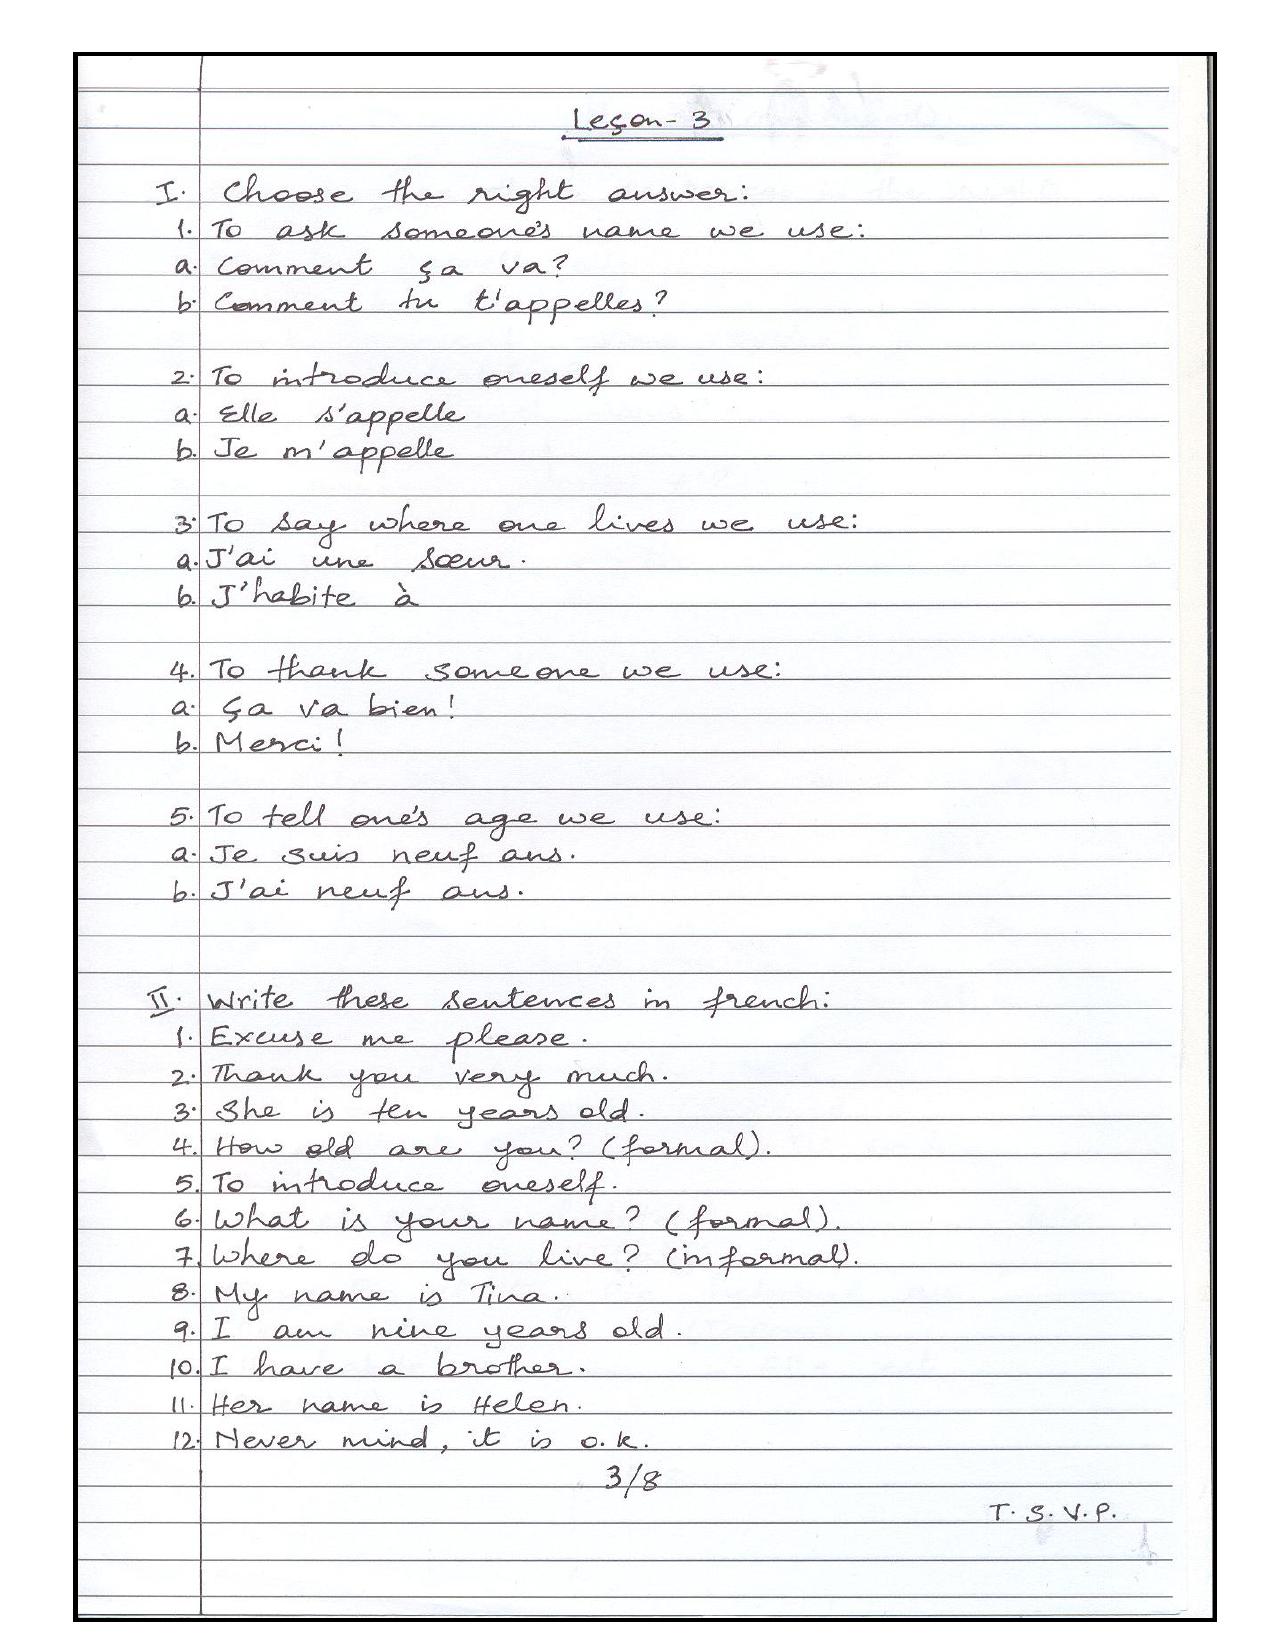 Leçon - 3
I. Choose the right answer:
1. To ask someone's name we use:
a. Comment ça va?
b. Comment tu t'appelles?
2. To introduce oneself we use:
a. Elle s'appelle
b. Je m'appelle
3. To say where one lives we use:
a. J'ai une sœur.
b. J'habite à
4. To thank someone we use:
a. ça va bien!
b. Merci!
5. To tell one's age we use:
a. Je suis neuf ans.
b. J'ai neuf ans.
II. Write these sentences in french:
1. Excuse me please.
2. Thank you very much.
3. She is ten years old.
4. How old are you? (formal).
5. To introduce oneself.
6. What is your name? (formal).
7. Where do you live? (informal).
8. My name is Tina.
9. I am nine years old.
10. I have a brother.
11. Her name is Helen.
12. Never mind, it is o.k.
3/8
T. S. V. P.